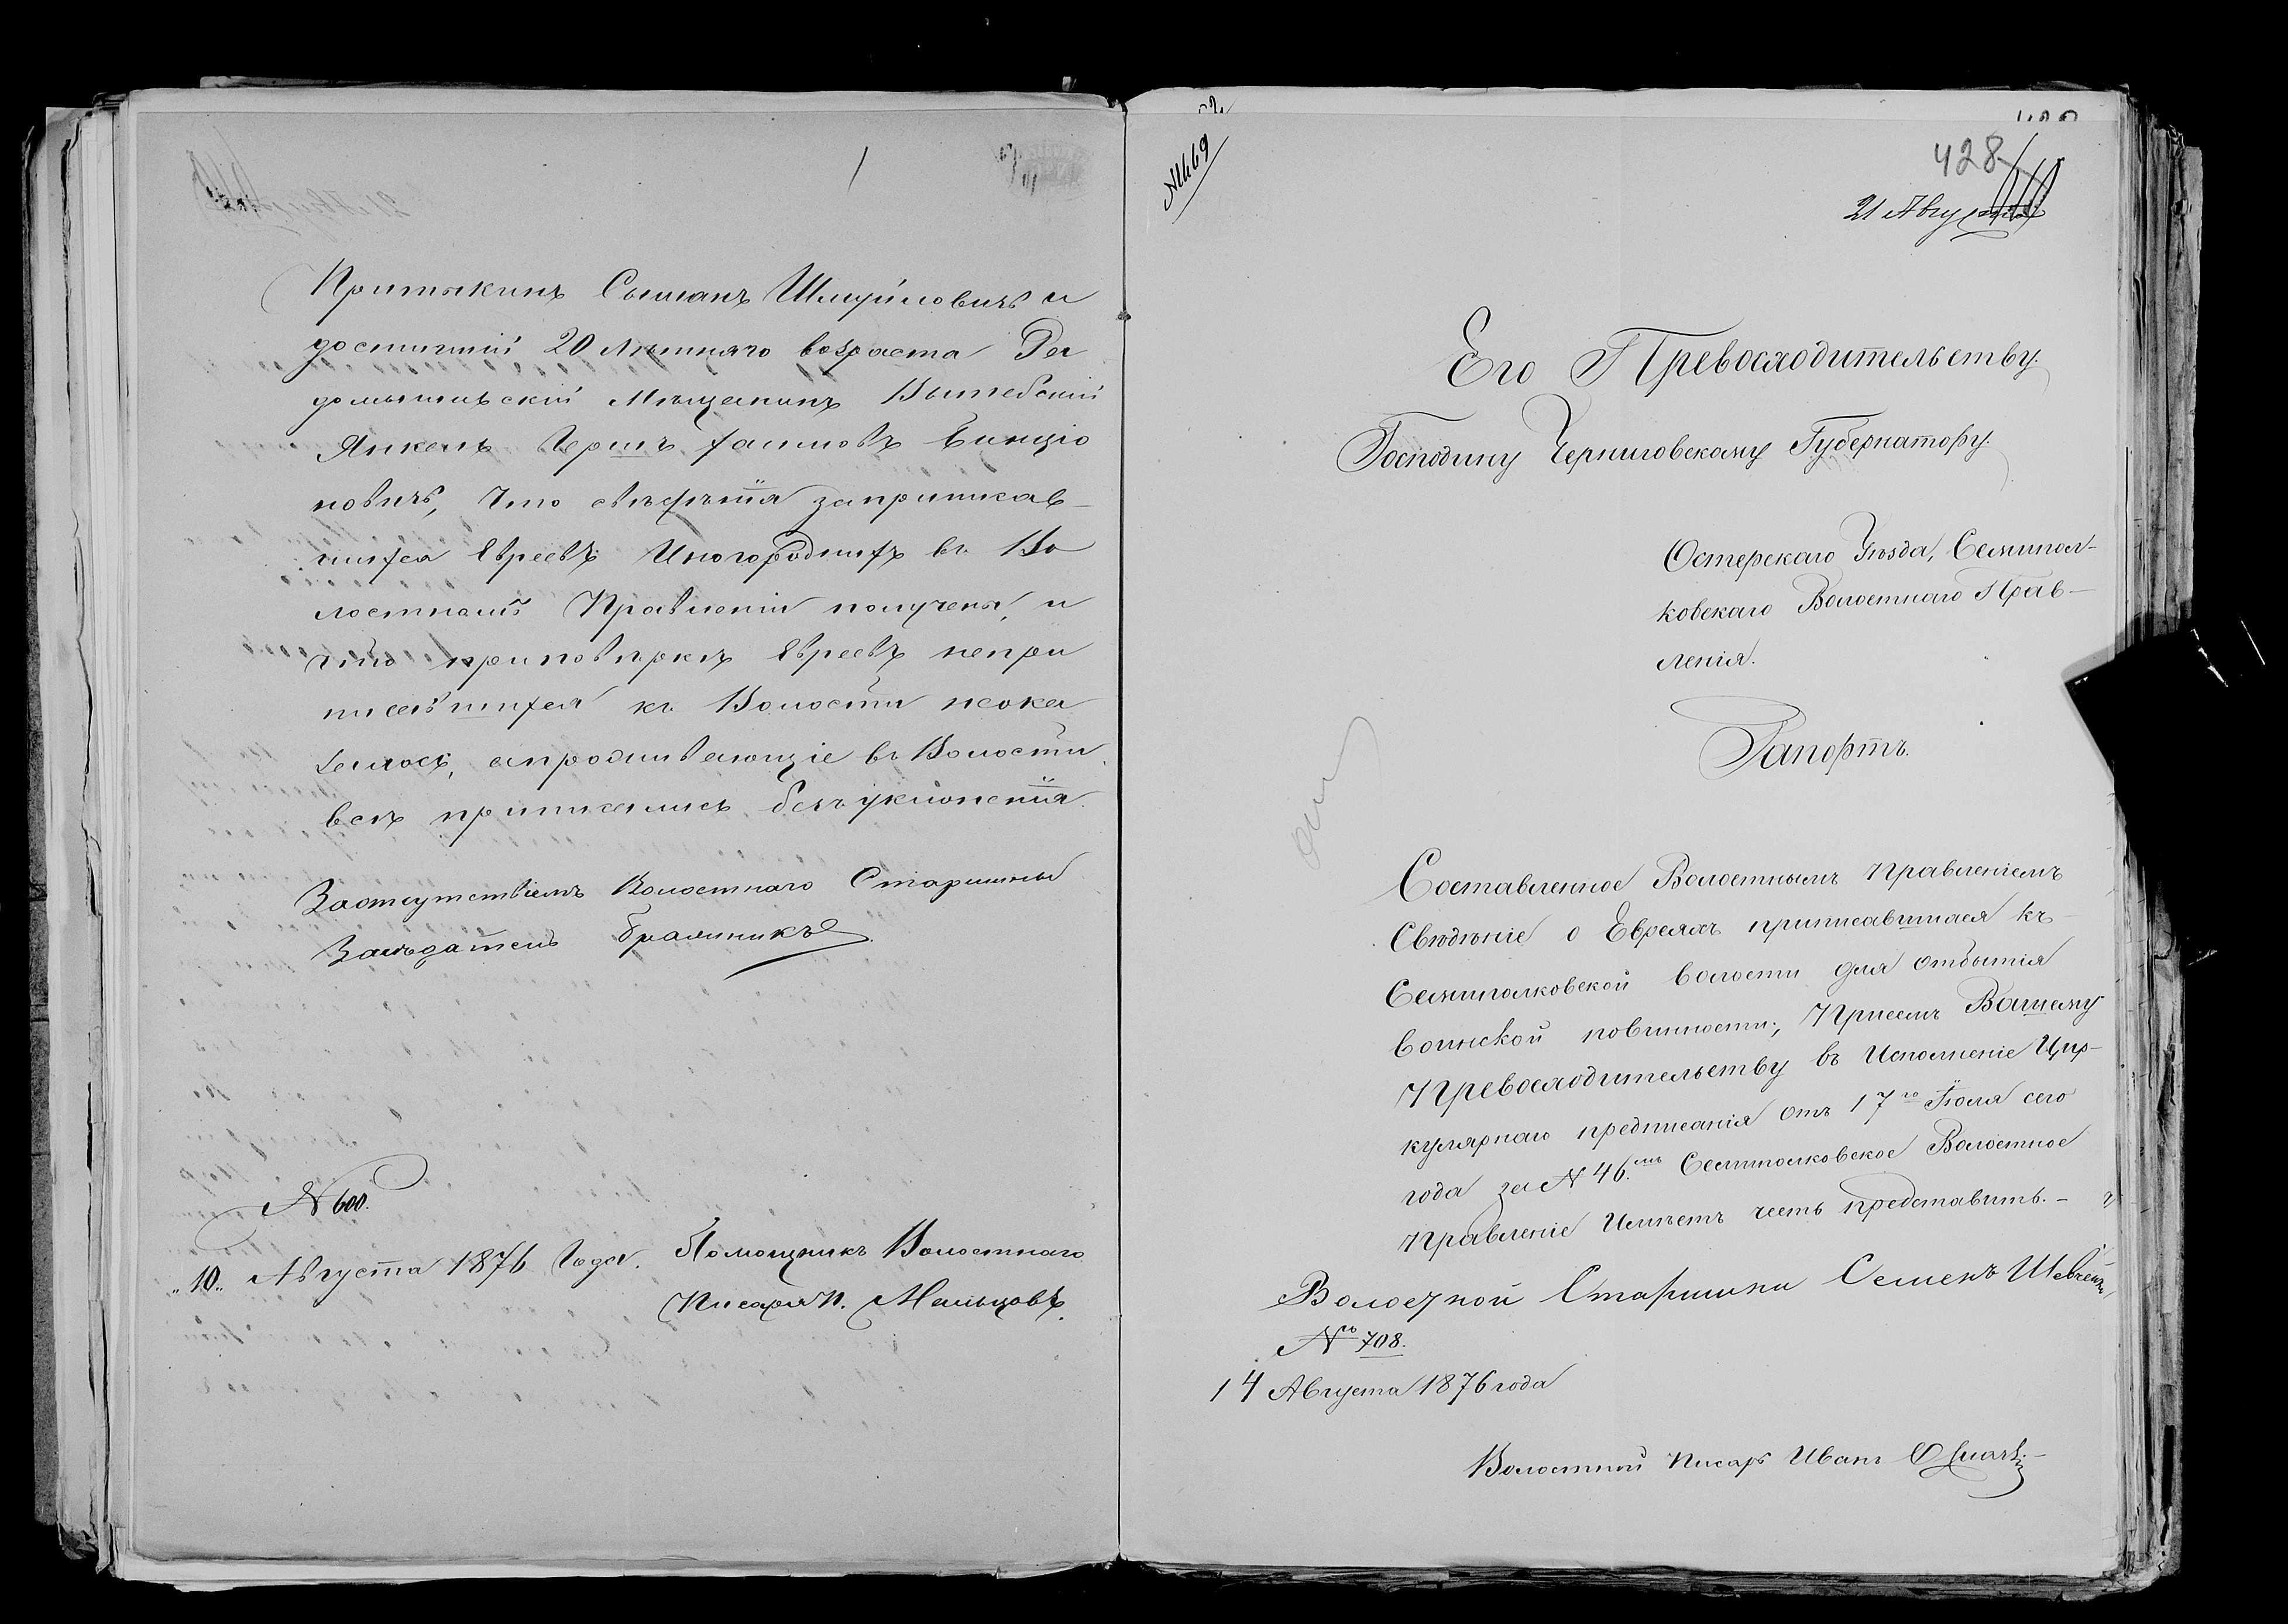 Притыкинъ Сыманъ Шмуйловичъ и
достигшій 20 лѣтняго возраста Ра
домысльскій Мѣщанинъ Вытебскій
Янкель Гершъ Хаимовъ
новичъ, Что свѣдѣнія заприписав-
шихся Евреевъ Иногороднихъ въ Во
лостномъ Правленіи получены, и
что приповѣркѣ Евреевъ непри
писавшихся къ Волости неока
залось, апроживающіе въ Волости
всѣ приписались безъ уклоненія.
Заотсутствіемъ Волостнаго Старшины
Засѣдатель
N 600.
"10" Августа 1876 Года. Помощникъ Волостнаго
Писаря И. Мальцовъ.
N 469
428
21 Августа
Его Превосходительству
Господину Черниговскому Губернатору.
Остерскаго Уѣзда, Семипол-
ковскаго Волостнаго Прав-
ленія.
Рапортъ.
Составленное Волостнымъ Правленіемъ
Свѣдѣніе о Евреяхъ приписавшихся къ
Семиполковской волости для отбытія
воинской повинности, При семъ Вашему
Превосходительству въ Исполненіе Цир-
кулярнаго предписанія отъ 17го Іюля сего
года за N 46.мъ Семиполковское Волостное
Правленіе Имѣетъ честь представить.-
Волосной Старшина Семенъ
Nъ 708.
14 Августа 1876 года
Волостной Писарь Иванъ